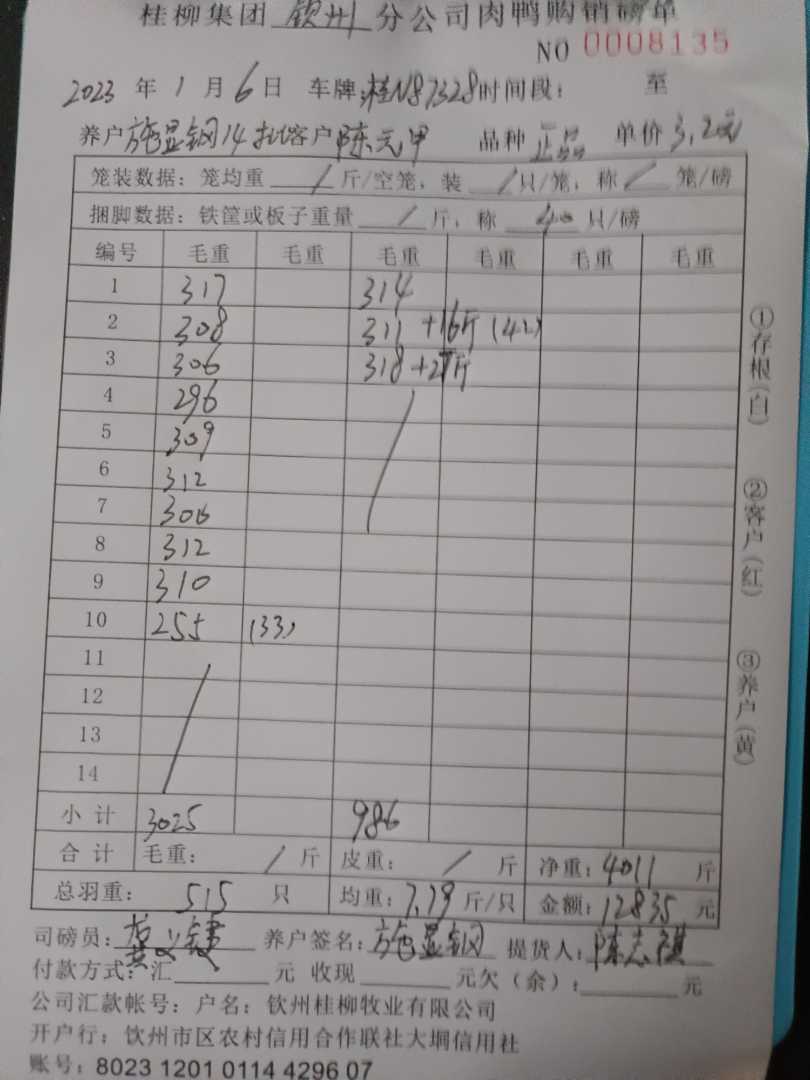 桂柳集团 钦州 分公司肉鸭购销磅单
NO 0008135
2023 年 1 月 6 日 车牌:桂N87328 时间段: 至
养户 施显钢14批 客户 陈元甲 品种 正品 单价 3.2元
笼装数据: 笼均重 / 斤/空笼, 装 / 只/笼, 称 / 笼/磅
捆脚数据: 铁筐或板子重量 / 斤, 称 40 只/磅
编号 毛重 毛重 毛重 毛重 毛重 毛重
1 317 314
2 308 311 +16斤 (42)
3 306 318 +27斤
4 296
5 309
6 312
7 306
8 312
9 310
10 255 (33)
11
12
13
14
小计 3025 986
合计 毛重: / 斤 皮重: / 斤 净重: 4011 斤
总羽重: 515 只 均重: 7.79 斤/只 金额: 12835 元
司磅员: 养户签名: 施显钢 提货人: 陈志祺
付款方式: 汇 元 收现 元欠(余): 元
公司汇款帐号: 户名: 钦州桂柳牧业有限公司
开户行: 钦州市区农村信用合作联社大垌信用社
账号: 8023 1201 0114 4296 07
①存根(白)
②客户(红)
③养户(黄)